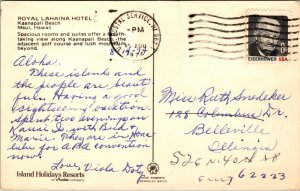 ROYAL LAHAINA HOTEL
Kaanapali Beach
Maui, Hawaii
Spacious rooms and suites offer a breath-
taking view along Kaanapali Beach - the
adjacent golf course and lush mountains
beyond.
PM
1971
EISENHOWER USA
Aloha.
These islands and
the people are beauti-
ful. Having a good
sightseeing vacation.
spent two evenings on
Kauai I. with Bud &
Marie. They are in Hono
lulu for ABA convention
now.
Love, Viola Doty
Miss Ruth Snedeker
128 Columbus Dr.
Belleville
Illinois
526 N
62223
Island Holidays Resorts